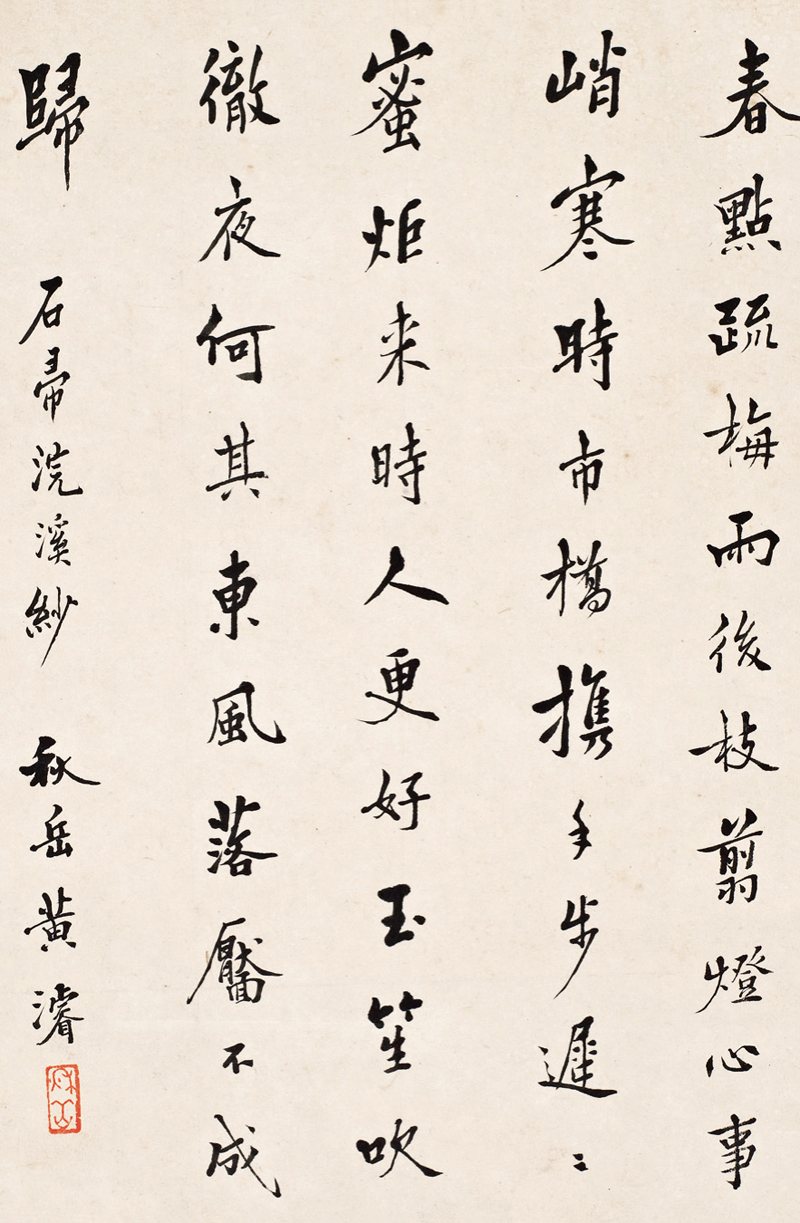 春點疏梅雨後枝翦燈心事
峭寒時市橋攜手步遲〻
蜜炬来時人更好玉笙吹
徹夜何其東風落靨不成
歸
石帚浣溪紗
秋岳黃濬